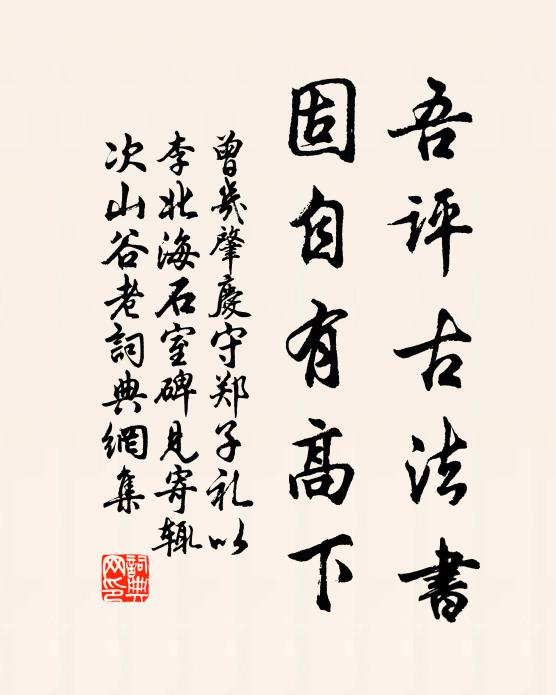 吾评古法書
固自有高下
曾幾肇慶守郑子礼以
李北海石室碑見寄輙
次山谷老詞典網集
詞典网印